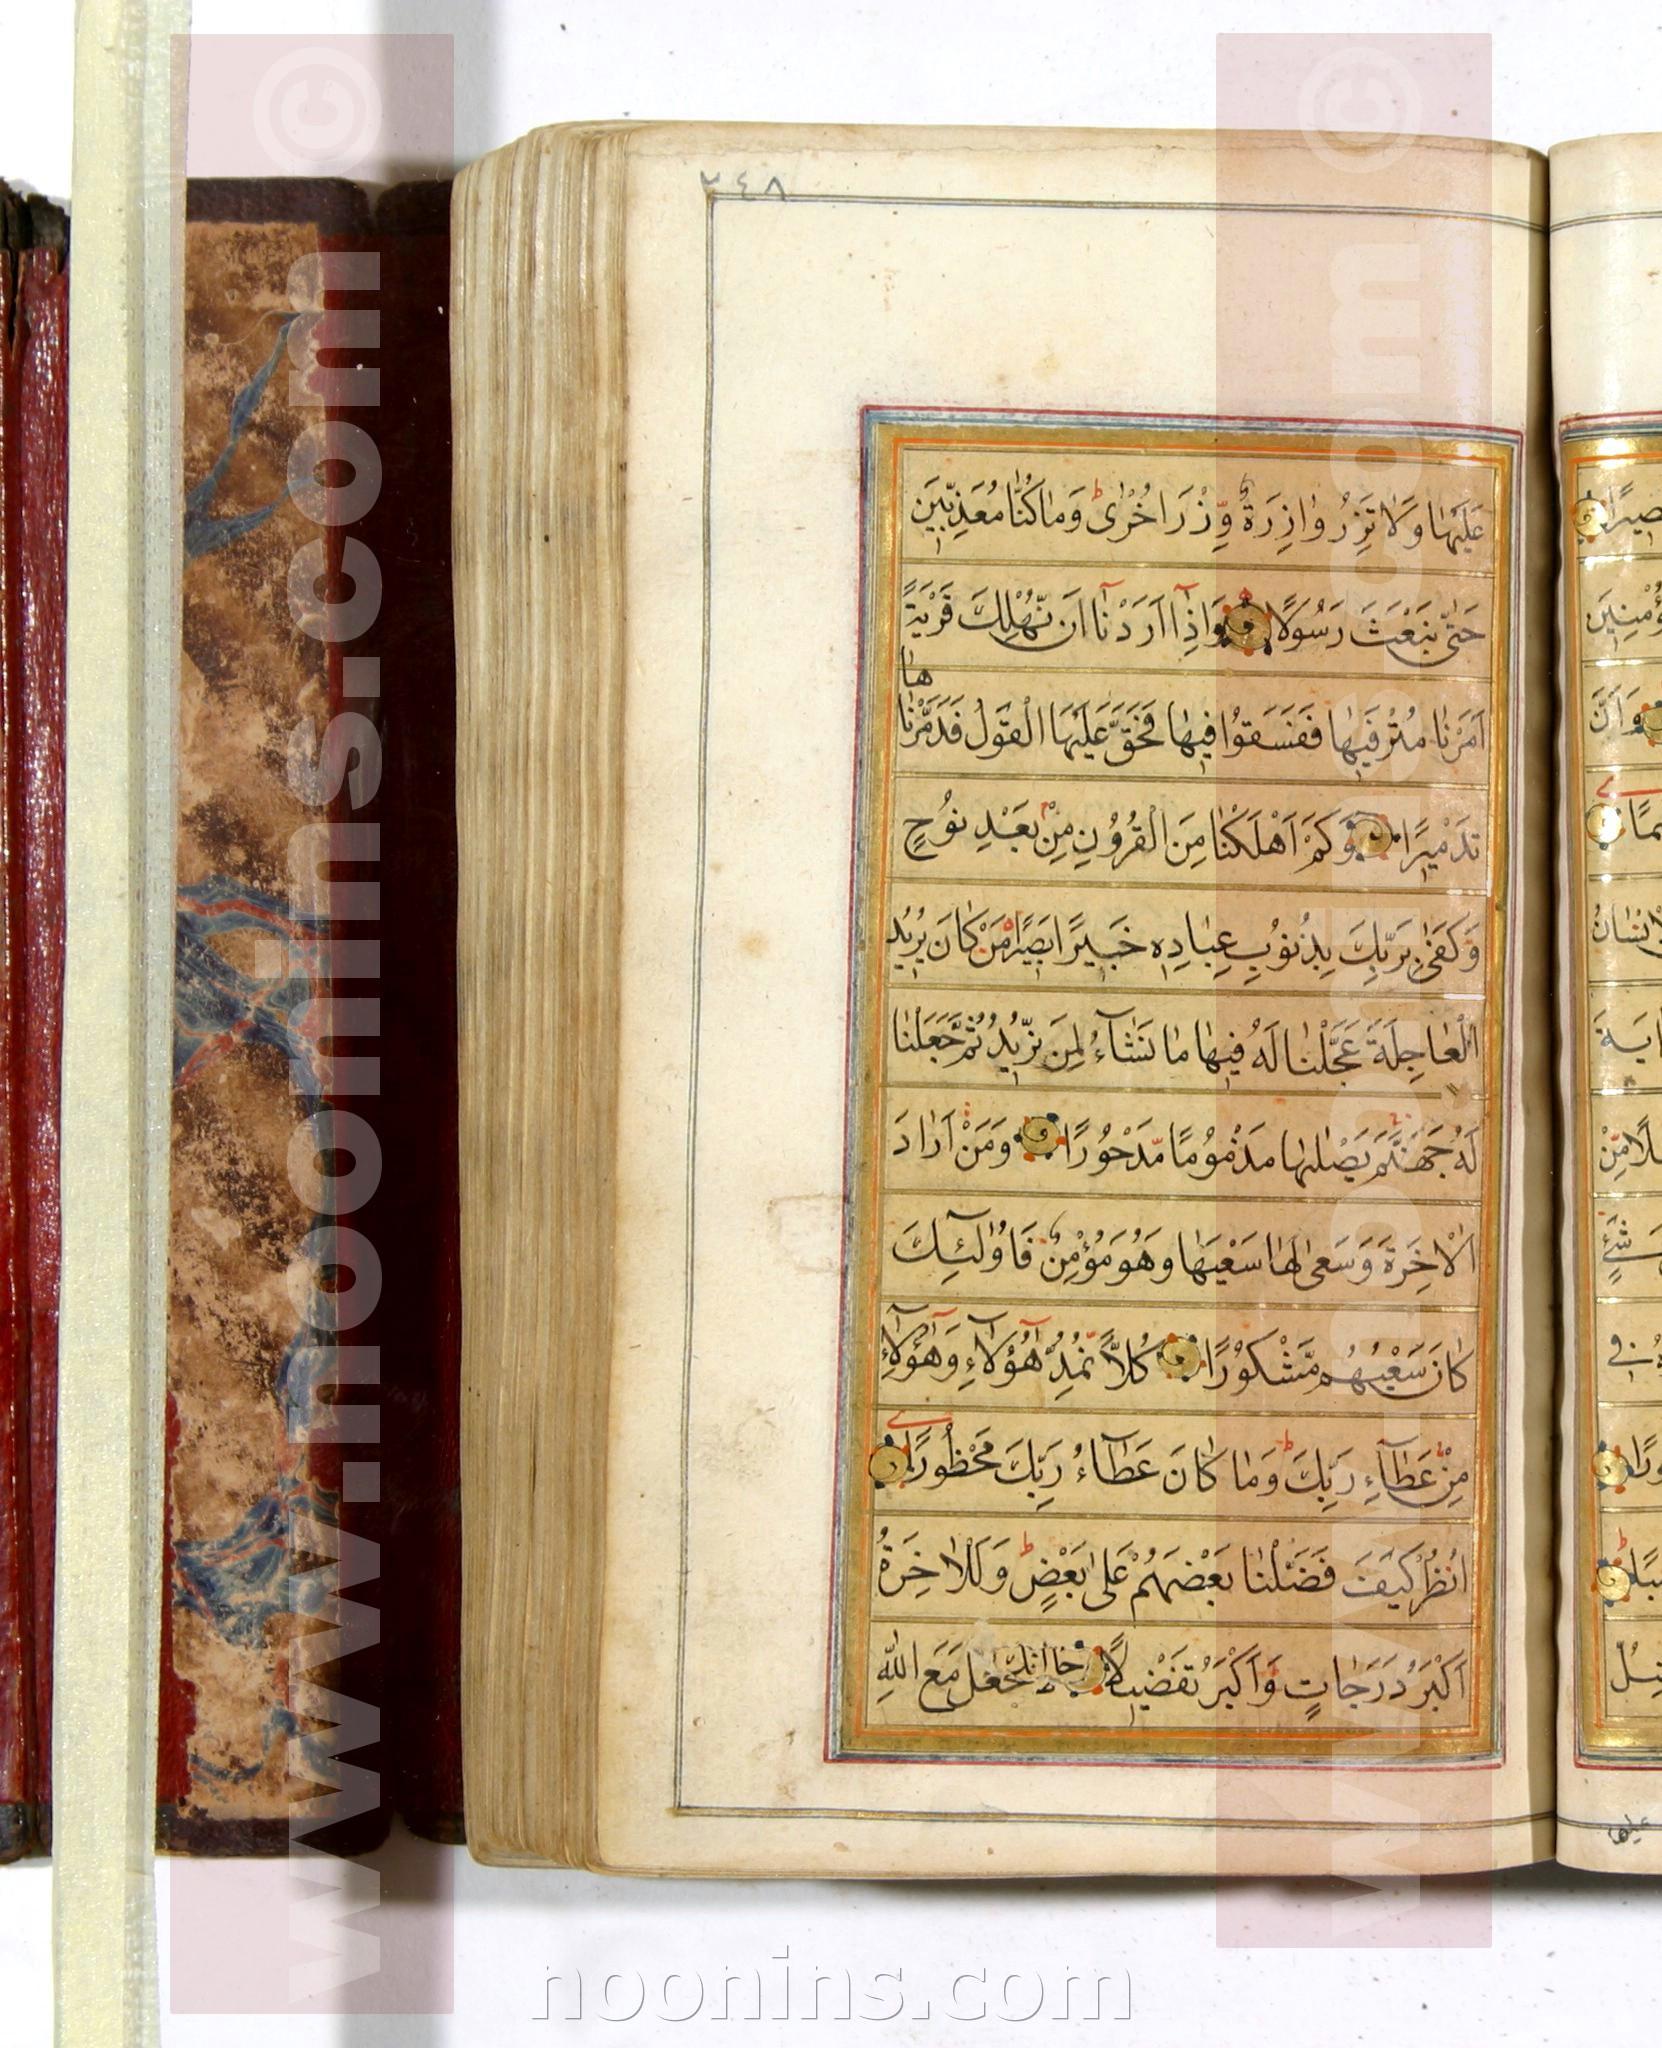 ٢٤٨
عَلَيْهَا وَلَا تَزِرُ وَازِرَةٌ وِّزْرَ اُخْرٰى ط وَمَا كُنَّا مُعَذِّبِينَ
حَتّٰى نَبْعَثَ رَسُولًا وَاِذَآ اَرَدْنَآ اَنْ نُّهْلِكَ قَرْيَةً
اَمَرْنَا مُتْرَفِيهَا فَفَسَقُوا فِيهَا فَحَقَّ عَلَيْهَا الْقَوْلُ فَدَمَّرْنَاهَا
تَدْمِيرًا وَكَمْ اَهْلَكْنَا مِنَ الْقُرُونِ مِنْ بَعْدِ نُوحٍ
وَكَفٰى بِرَبِّكَ بِذُنُوبِ عِبَادِهِ خَبِيرًا بَصِيرًا مَنْ كَانَ يُرِيدُ
الْعَاجِلَةَ عَجَّلْنَا لَهُ فِيهَا مَا نَشَآءُ لِمَنْ نُّرِيدُ ثُمَّ جَعَلْنَا
لَهُ جَهَنَّمَ يَصْلٰيهَا مَذْمُومًا مَّدْحُورًا وَمَنْ اَرَادَ
الْاٰخِرَةَ وَسَعٰى لَهَا سَعْيَهَا وَهُوَ مُؤْمِنٌ فَاُولٰٓئِكَ
كَانَ سَعْيُهُمْ مَّشْكُورًا كُلًّا نُّمِدُّ هٰٓؤُلَآءِ وَهٰٓؤُلَآءِ
مِنْ عَطَآءِ رَبِّكَ ط وَمَا كَانَ عَطَآءُ رَبِّكَ مَحْظُورًا
اُنْظُرْ كَيْفَ فَضَّلْنَا بَعْضَهُمْ عَلٰى بَعْضٍ ط وَلَلْاٰخِرَةُ
اَكْبَرُ دَرَجَاتٍ وَاَكْبَرُ تَفْضِيلًا لَا تَجْعَلْ مَعَ اللّٰهِ
عليها
www.noonins.com ©
www.noonins.com ©
noonins.com